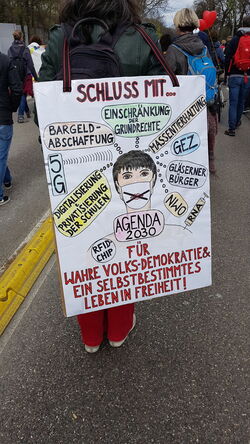 SCHLUSS MIT...
EINSCHRÄNKUNG
DER
GRUNDRECHTE
BARGELD-
ABSCHAFFUNG
MASSENTIERHALTUNG
GEZ
5G
GLÄSERNER
BÜRGER
DIGITALISIERUNG
PRIVATISIERUNG
DER SCHULEN
NWO
ERNA
AGENDA
2030
RFID-
CHIP
FÜR
WAHRE VOLKS-DEMOKRATIE&
EIN SELBSTBESTIMMTES
LEBEN IN FREIHEIT!